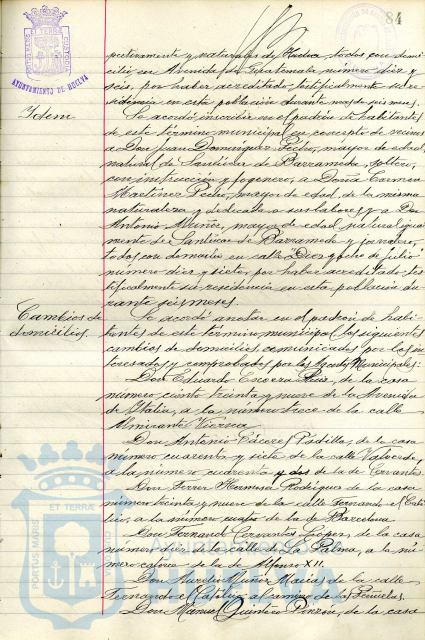 84
AYUNTAMIENTO DE HUELVA
pectivamente y naturales de Huelva todos con domi-
cilio en Avenida de Guatemala número diez y
seis, por haber acreditado testificalmente su re-
sidencia en esta población durante mas de seis meses.
Idem
Se acordó inscribir en el padrón de habitantes
de este término municipal en concepto de vecinos
a Don Juan Dominguez Pedro, mayor de edad,
natural de Sanlúcar de Barrameda, soltero,
con instrucción y fogonero, a Doña Carmen
Martínez Pedro, mayor de edad, de la misma
naturaleza y dedicada a sus labores y a Don
Antonio Muñoz, mayor de edad, natural igual-
mente de Sanlúcar de Barrameda y jornalero,
todos con domicilio en calle Diez y ocho de Julio
número diez y siete, por haber acreditado tes-
tificalmente su residencia en esta población du-
rante seis meses.
Cambios de
domicilios.
Se acordó anotar en el padrón de habi-
tantes de este término municipal los siguientes
cambios de domicilios comunicados por los in-
teresados y comprobados por los Agentes Municipales:
Don Eduardo Ruiz, de la casa
número ciento treinta y nueve de la Avenida
de Italia, a la número trece de la calle
Almirante
Don Antonio Cáceres Padilla, de la casa
número cuarenta y siete de la calle Valverde,
a la número cuarenta y dos de la de Cervantes.
Don Ferrer Hermosa Rodriguez de la casa
número treinta y nueve de la calle Fernando el Cató-
lico, a la número cuatro de la de Barcelona
Don Fernando Cervantes López, de la casa
número diez de la calle de la Palma, a la nú-
mero catorce de la de Alfonso XII.
Don Aurelio Muñoz Macias de la calle
Fernando el Católico al camino de las Peñuelas.
Don Manuel Quintero Pinzón, de la casa
PORTUS MARIS ET TERRAE CUSTODIA
Ayuntamiento